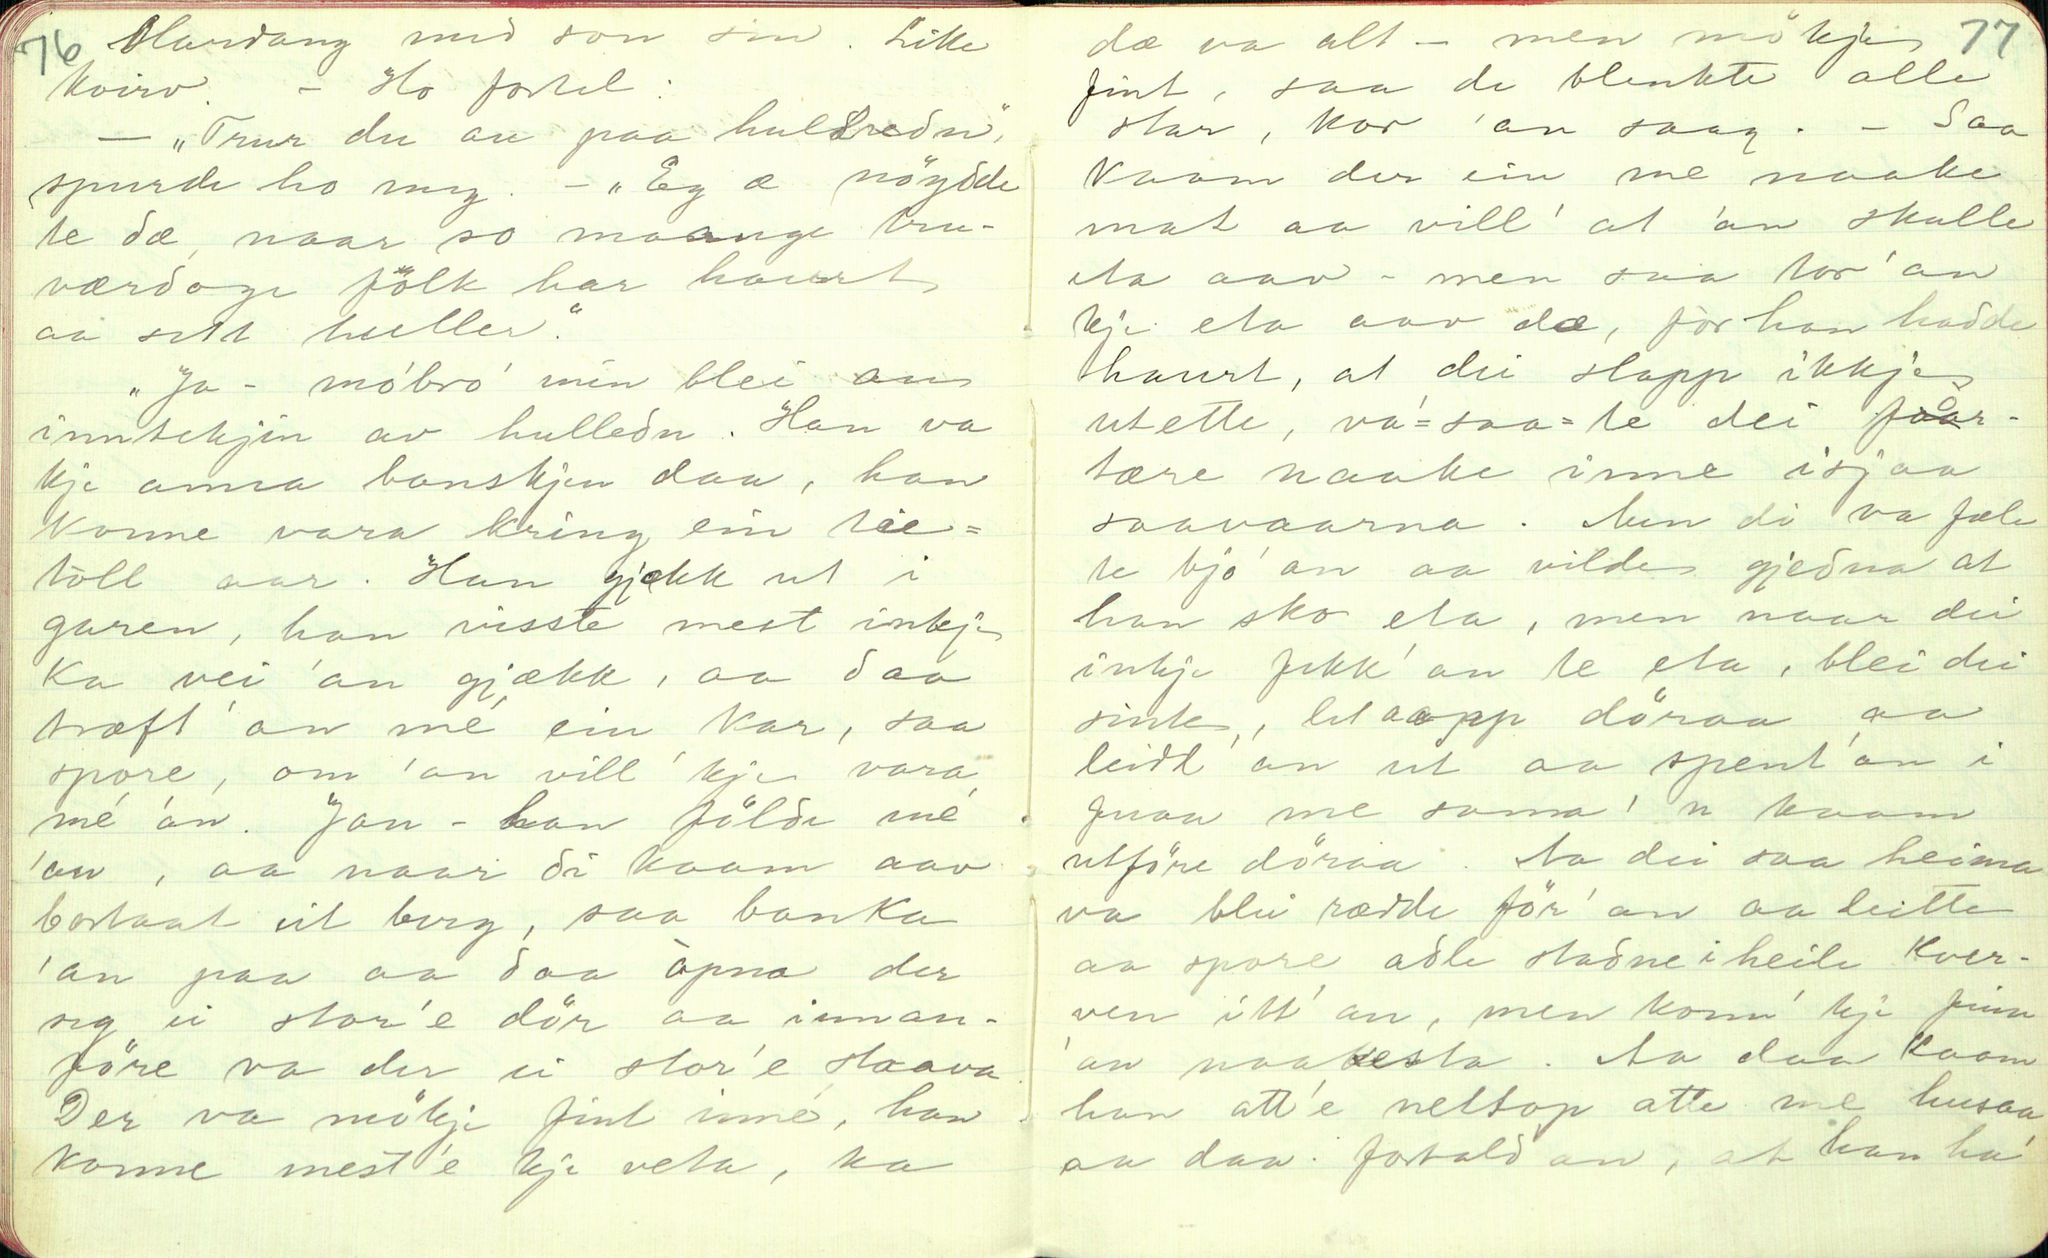 76
Hardang med son sin. Like
Koirv. – Ho fortel:
– "Trur du au paa huldredn",
spurde ho meg. – "Eg æ nöydde
te dæ, naar so maange tru-
værdoge fölk har haurt
aa sett huller."
"Ja – móbró min blei au
inntekjin av hulledn. Han va
kje anna banskjen daa, han
konne vara kring ein tie=
töll aar. Han gjekk ut i
garen, han visste mest inkje
ka vei 'an gjækk, aa daa
træft 'an mé ein kar, saa
spore, om 'an vill' kje vara
mé 'an. Jau – han földe mé
'an, aa naar di kaam aav
bortaat eit berg, saa banka
'an paa aa daa òpna der
seg ei stor'e dör aa innan-
före va der ei stor'e staava
Der va mökje fint inné, han
konne mest'e kje veta, ka
77
dæ va alt – men mökje
fint, saa de blenkte alle
star, kor 'an saag. – Saa
kaam der ein me naake
mat aa vill' at 'an skulle
eta aav – men saa tor 'an
kje eta aav dæ, för han hadde
haurt, at dei slapp ikkje
utette, vá=saa=te dei får-
tære naake inne isjaa
saavaarna. Men di va fæle
te bjó 'an aa vilde gjedna at
han sko eta, men naar dei
inkje fekk 'an te eta, blei dei
sinte, let aapp döraa aa
leidd' 'an ut aa spent 'an i
fraa me sama' 'n kaam
utföre döraa. Aa dei saa heima
va blei rædde för 'an aa leitte
aa spore adle stadne i heile Kver-
ven itt' 'an, men konn' kje finn
'an naakesta. Aa daa kaam
han att'e nettop atte me husaa
aa daa fortald 'an, at han ha'